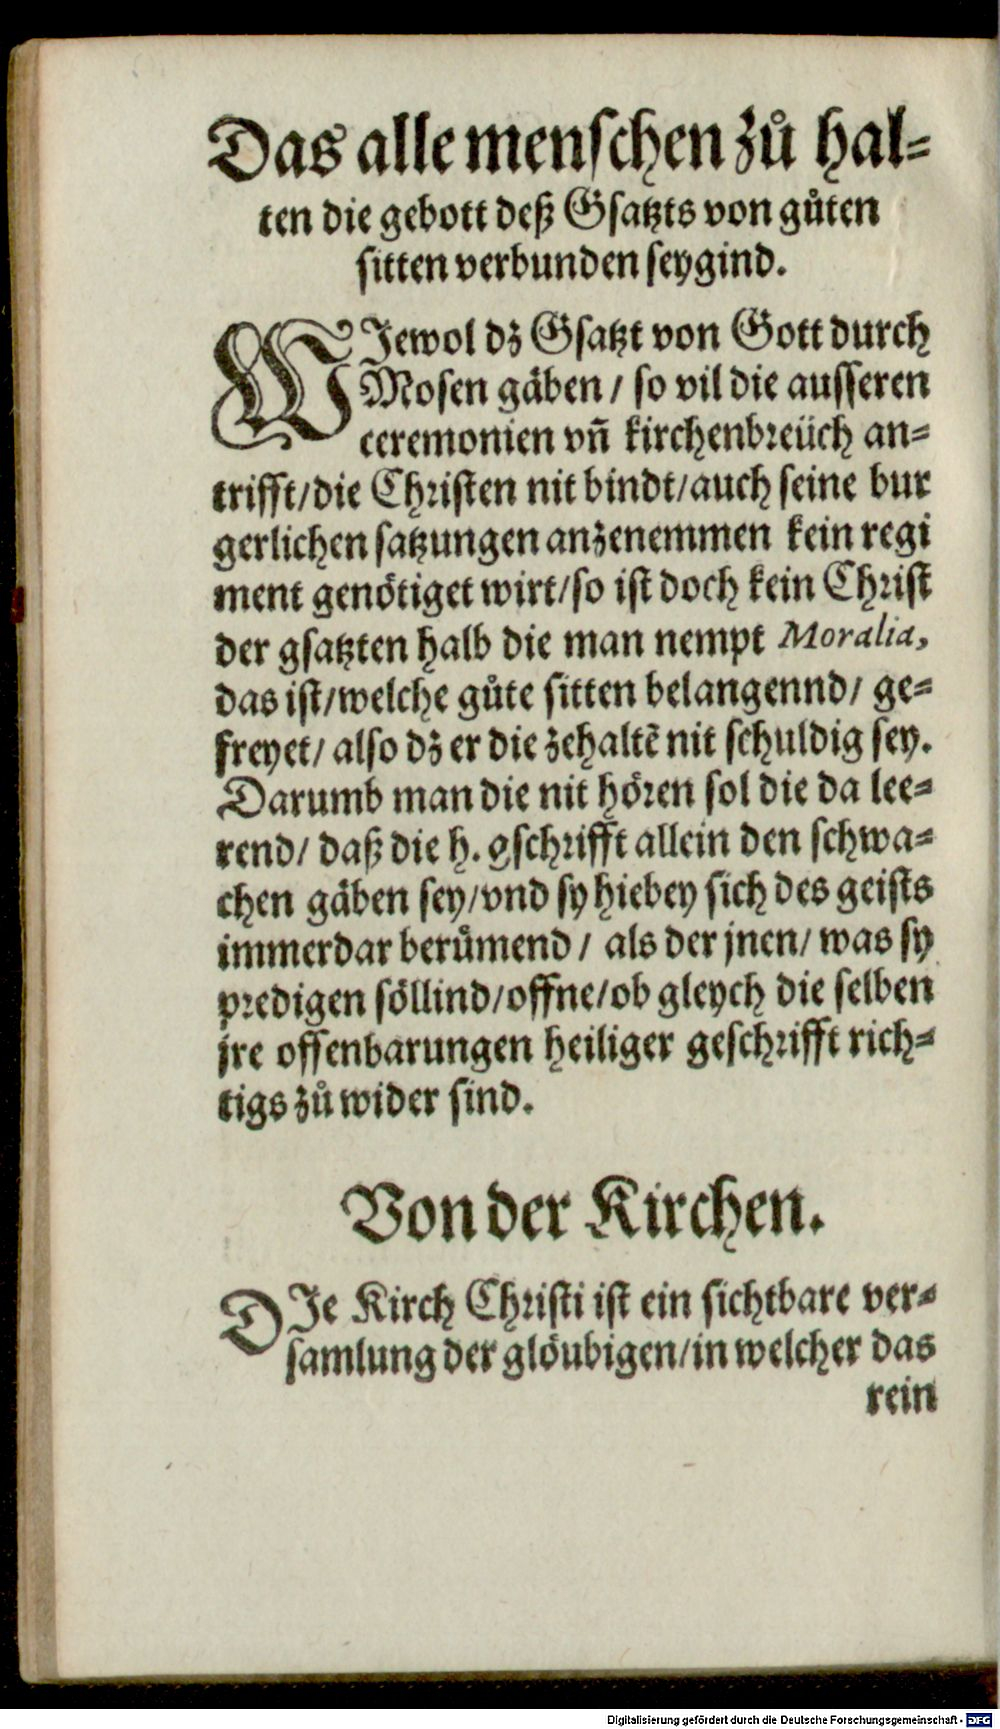 Das alle menschen zů hal-
ten die gebott deß Gsatzts von gůten
sitten verbunden seygind.
WJewol dz Gsatzt von Gott durch
Mosen gäben / so vil die ausseren
ceremonien vñ kirchenbreüch an-
trifft/die Christen nit bindt/auch seine bur
gerlichen satzungen anzenemmen kein regi
ment genötiget wirt/so ist doch kein Christ
der gsatzten halb die man nempt Moralia,
das ist/welche gůte sitten belangennd/ ge-
freyet/ also dz er die zehaltē nit schuldig sey.
Darumb man die nit hören sol die da lee-
rend/ daß die h. gschrifft allein den schwa-
chen gäben sey/vnd sy hiebey sich des geists
immerdar berůmend / als der jnen/ was sy
predigen söllind/offne/ob gleych die selben
jre offenbarungen heiliger geschrifft rich-
tigs zů wider sind.
Von der Kirchen.
DJe Kirch Christi ist ein sichtbare ver-
samlung der glöubigen/in welcher das
rein
Digitalisierung gefördert durch die Deutsche Forschungsgemeinschaft - DFG